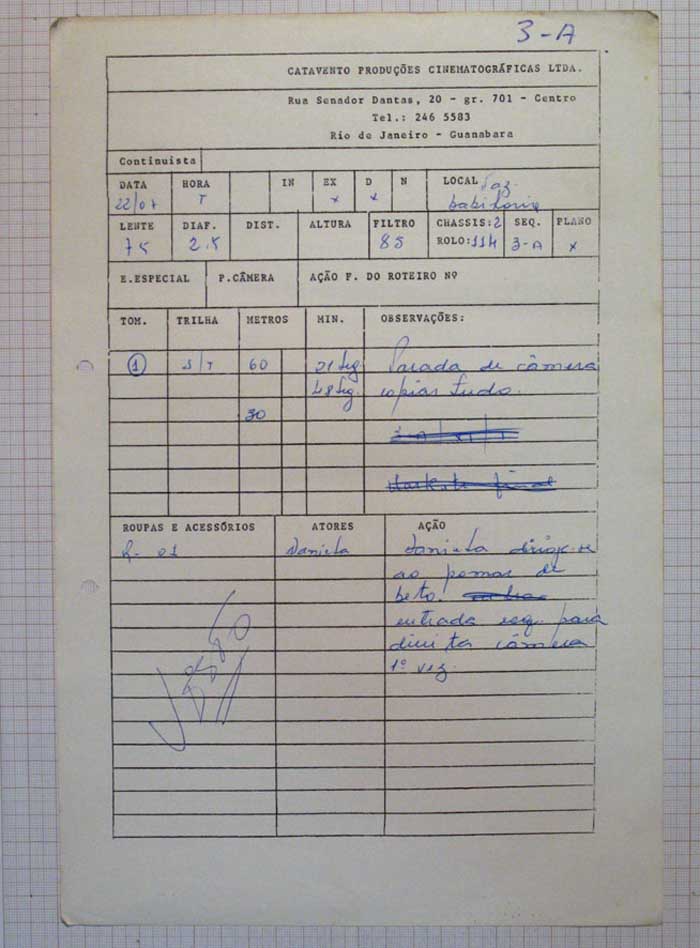 3-A
CATAVENTO PRODUÇÕES CINEMATOGRÁFICAS LTDA.
Rua Senador Dantas, 20 - gr. 701 - Centro
Tel.: 246 5583
Rio de Janeiro - Guanabara
Continuista
DATA HORA IN EX D N LOCAL Faz.
22/07 T x x babilonia
LENTE DIAF. DIST. ALTURA FILTRO CHASSIS:2 SEQ. PLANO
75 2.5 85 ROLO:114 3-A x
E.ESPECIAL P.CÂMERA AÇÃO P. DO ROTEIRO Nº
TOM. TRILHA METROS MIN. OBSERVAÇÕES:
1 S/T 60 21 seg Parada de câmera
48 seg. copiar tudo.
30
ROUPAS E ACESSÓRIOS ATORES AÇÃO
R-01 Daniela Daniela dirige-se
ao pomar de
beto.
entrada esq. para
direita câmera
1ª vez.